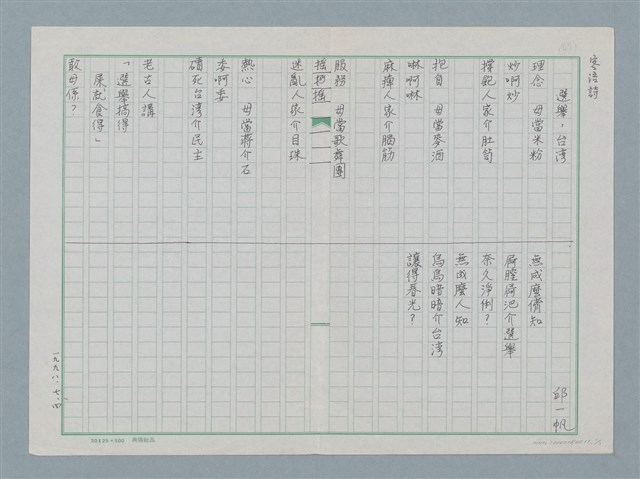 客語詩
選舉，台灣
邱一帆
理念　毋當米粉
炒啊炒
撐飽人家介肚笥
抱負　毋當麥酒
啉啊啉
麻痺人家介腦筋
服務　毋當歌舞團
搖搖搖
迷亂人家介目珠
熱心　毋當蔣介石
委啊委
磧死台灣介民主
老古人講
「選舉搞得
屎就食得」
敢毋係？
無成麼儕知
屙膣屙㞎介選舉
奈久淨俐？
無成麼人知
烏烏暗暗介台灣
讓得春光？
一九九八．七．四
20×25＝500